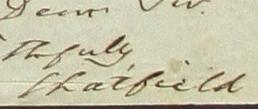 Dear Sir.
thfully
Chatfield